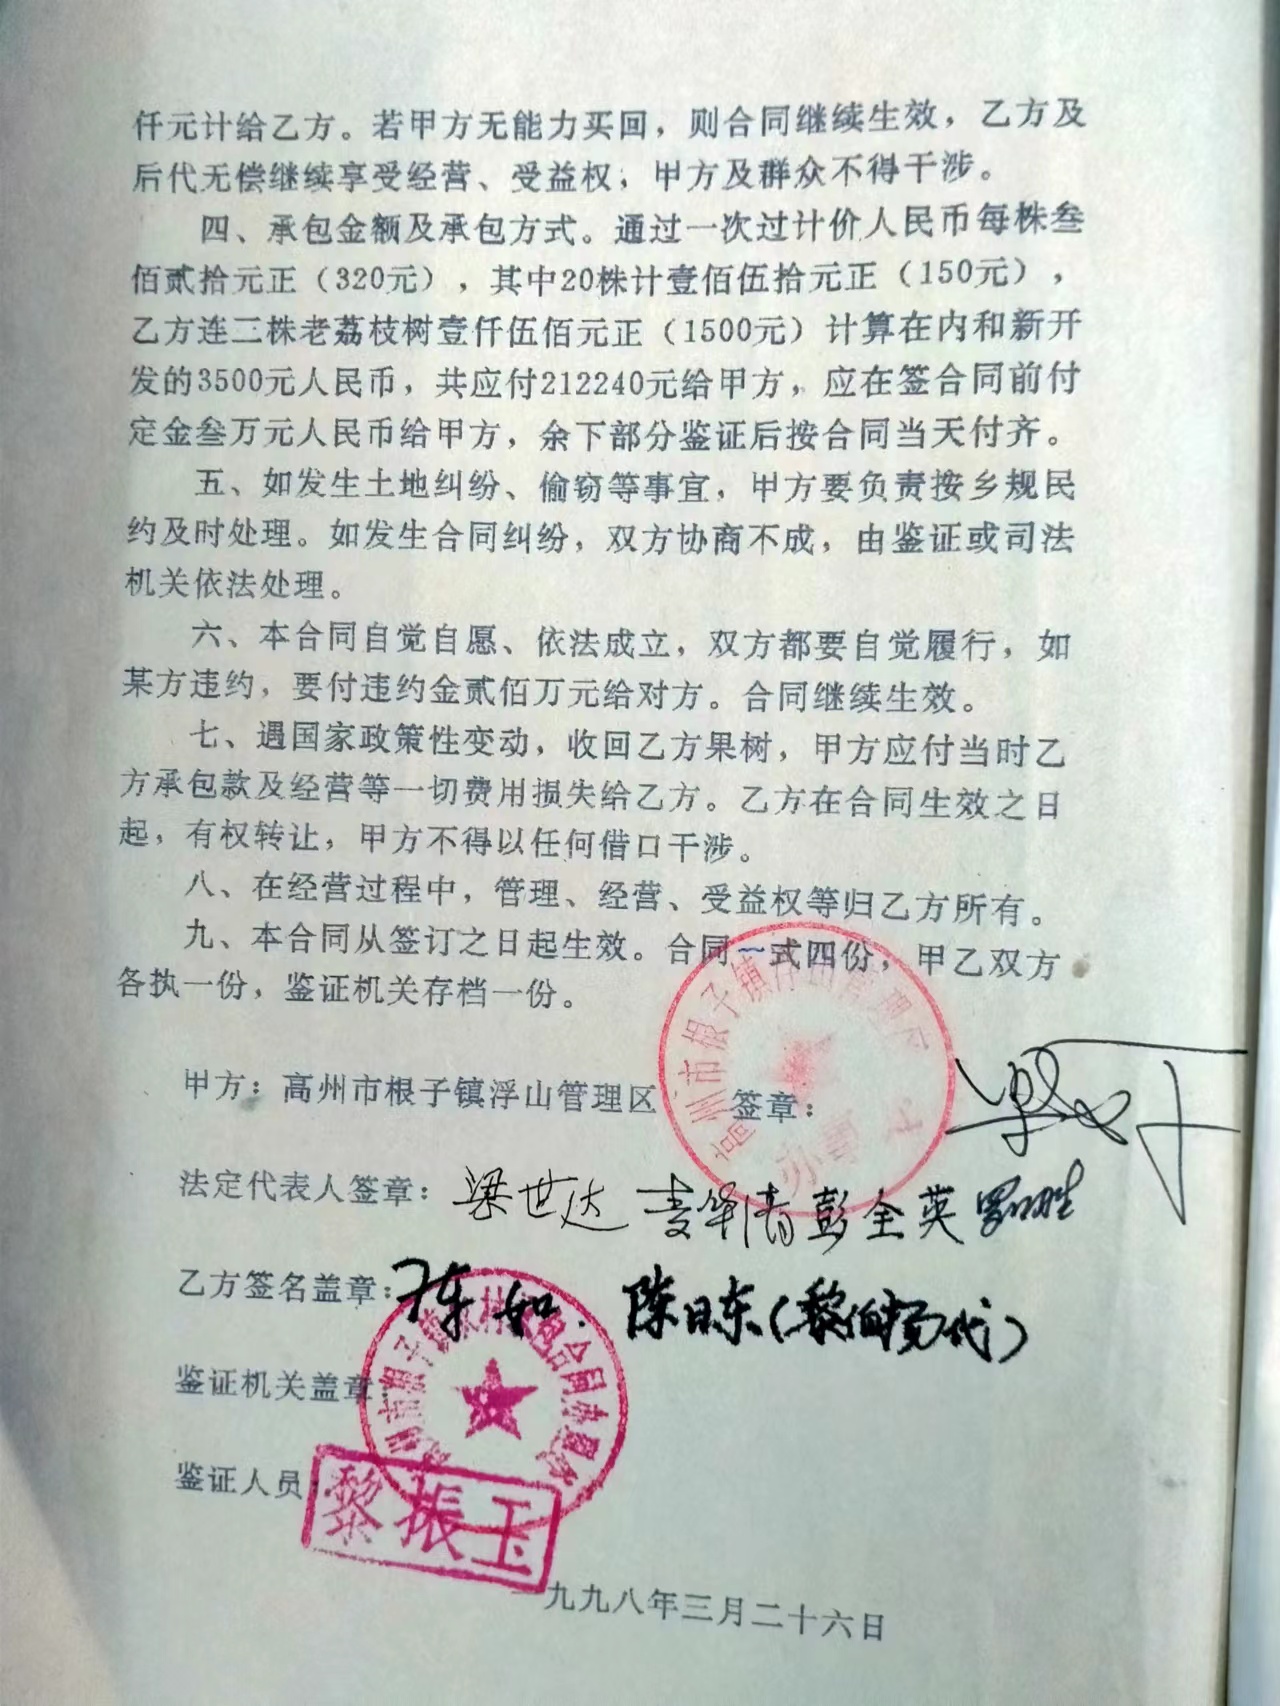 仟元计给乙方。若甲方无能力买回，则合同继续生效，乙方及
后代无偿继续享受经营、受益权，甲方及群众不得干涉。
四、承包金额及承包方式。通过一次过计价人民币每株叁
佰贰拾元正（320元），其中20株计壹佰伍拾元正（150元），
乙方连二株老荔枝树壹仟伍佰元正（1500元）计算在内和新开
发的3500元人民币，共应付212240元给甲方，应在签合同前付
定金叁万元人民币给甲方，余下部分鉴证后按合同当天付齐。
五、如发生土地纠纷、偷窃等事宜，甲方要负责按乡规民
约及时处理。如发生合同纠纷，双方协商不成，由鉴证或司法
机关依法处理。
六、本合同自觉自愿、依法成立，双方都要自觉履行，如
某方违约，要付违约金贰佰万元给对方。合同继续生效。
七、遇国家政策性变动，收回乙方果树，甲方应付当时乙
方承包款及经营等一切费用损失给乙方。乙方在合同生效之日
起，有权转让，甲方不得以任何借口干涉。
八、在经营过程中，管理、经营、受益权等归乙方所有。
九、本合同从签订之日起生效。合同一式四份，甲乙双方
各执一份，鉴证机关存档一份。
甲方：高州市根子镇浮山管理区 签章：
高州市根子镇浮山管理区
办事
法定代表人签章：梁世达 彭全英
乙方签名盖章：陈如 陈日东（黎伯杨代）
鉴证机关盖章
州市根子镇 合同
鉴证人员：
黎振玉
一九九八年三月二十六日